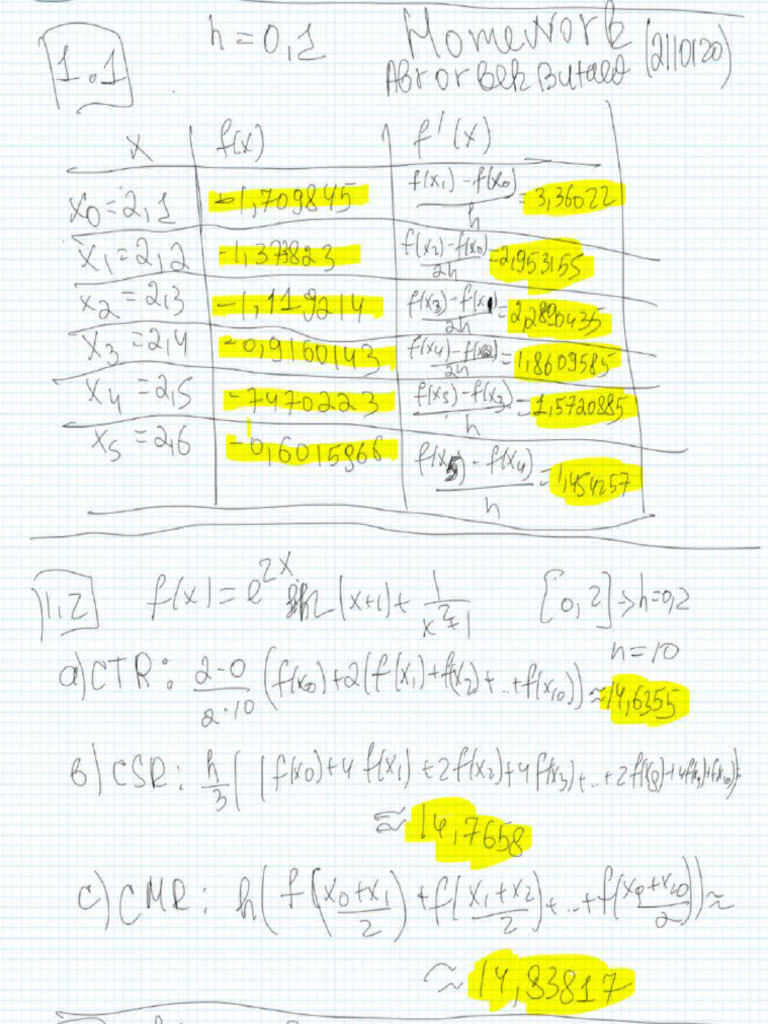 1.1 h=0,1 Homework
AbrorBek Butaev (2110120)
x f(x) f'(x)
x₀=2,1 -1,709845 (f(x₁)-f(x₀))/h = 3,36022
x₁=2,2 -1,373823 (f(x₂)-f(x₀))/2h = 2,953155
x₂=2,3 -1,119214 (f(x₃)-f(x₁))/2h = 2,2890435
x₃=2,4 -0,9160143 (f(x₄)-f(x₂))/2h = 1,8609585
x₄=2,5 -7470223 (f(x₅)-f(x₃))/h = 1,5720885
x₅=2,6 -0,6015966 (f(x₅)-f(x₄))/h = 1,454257
1,2 f(x)=e^2x (x+1)+ 1/(x²+1) [0,2]→h=0,2
n=10
a) CTR: (2-0)/(2·10) (f(x₀)+2(f(x₁)+f(x₂)+..+f(x₁₀)) ≈ 14,6355
b) CSR: h/3 ( (f(x₀)+4f(x₁)+2f(x₂)+4f(x₃)+..+2f(x₈)+4f(x₉)+f(x₁₀))=
≈ 14,7658
c) CMR: h( f((x₀+x₁)/2)+f((x₁+x₂)/2)+..+f((x₉+x₁₀)/2)) ≈
≈ 14,83817